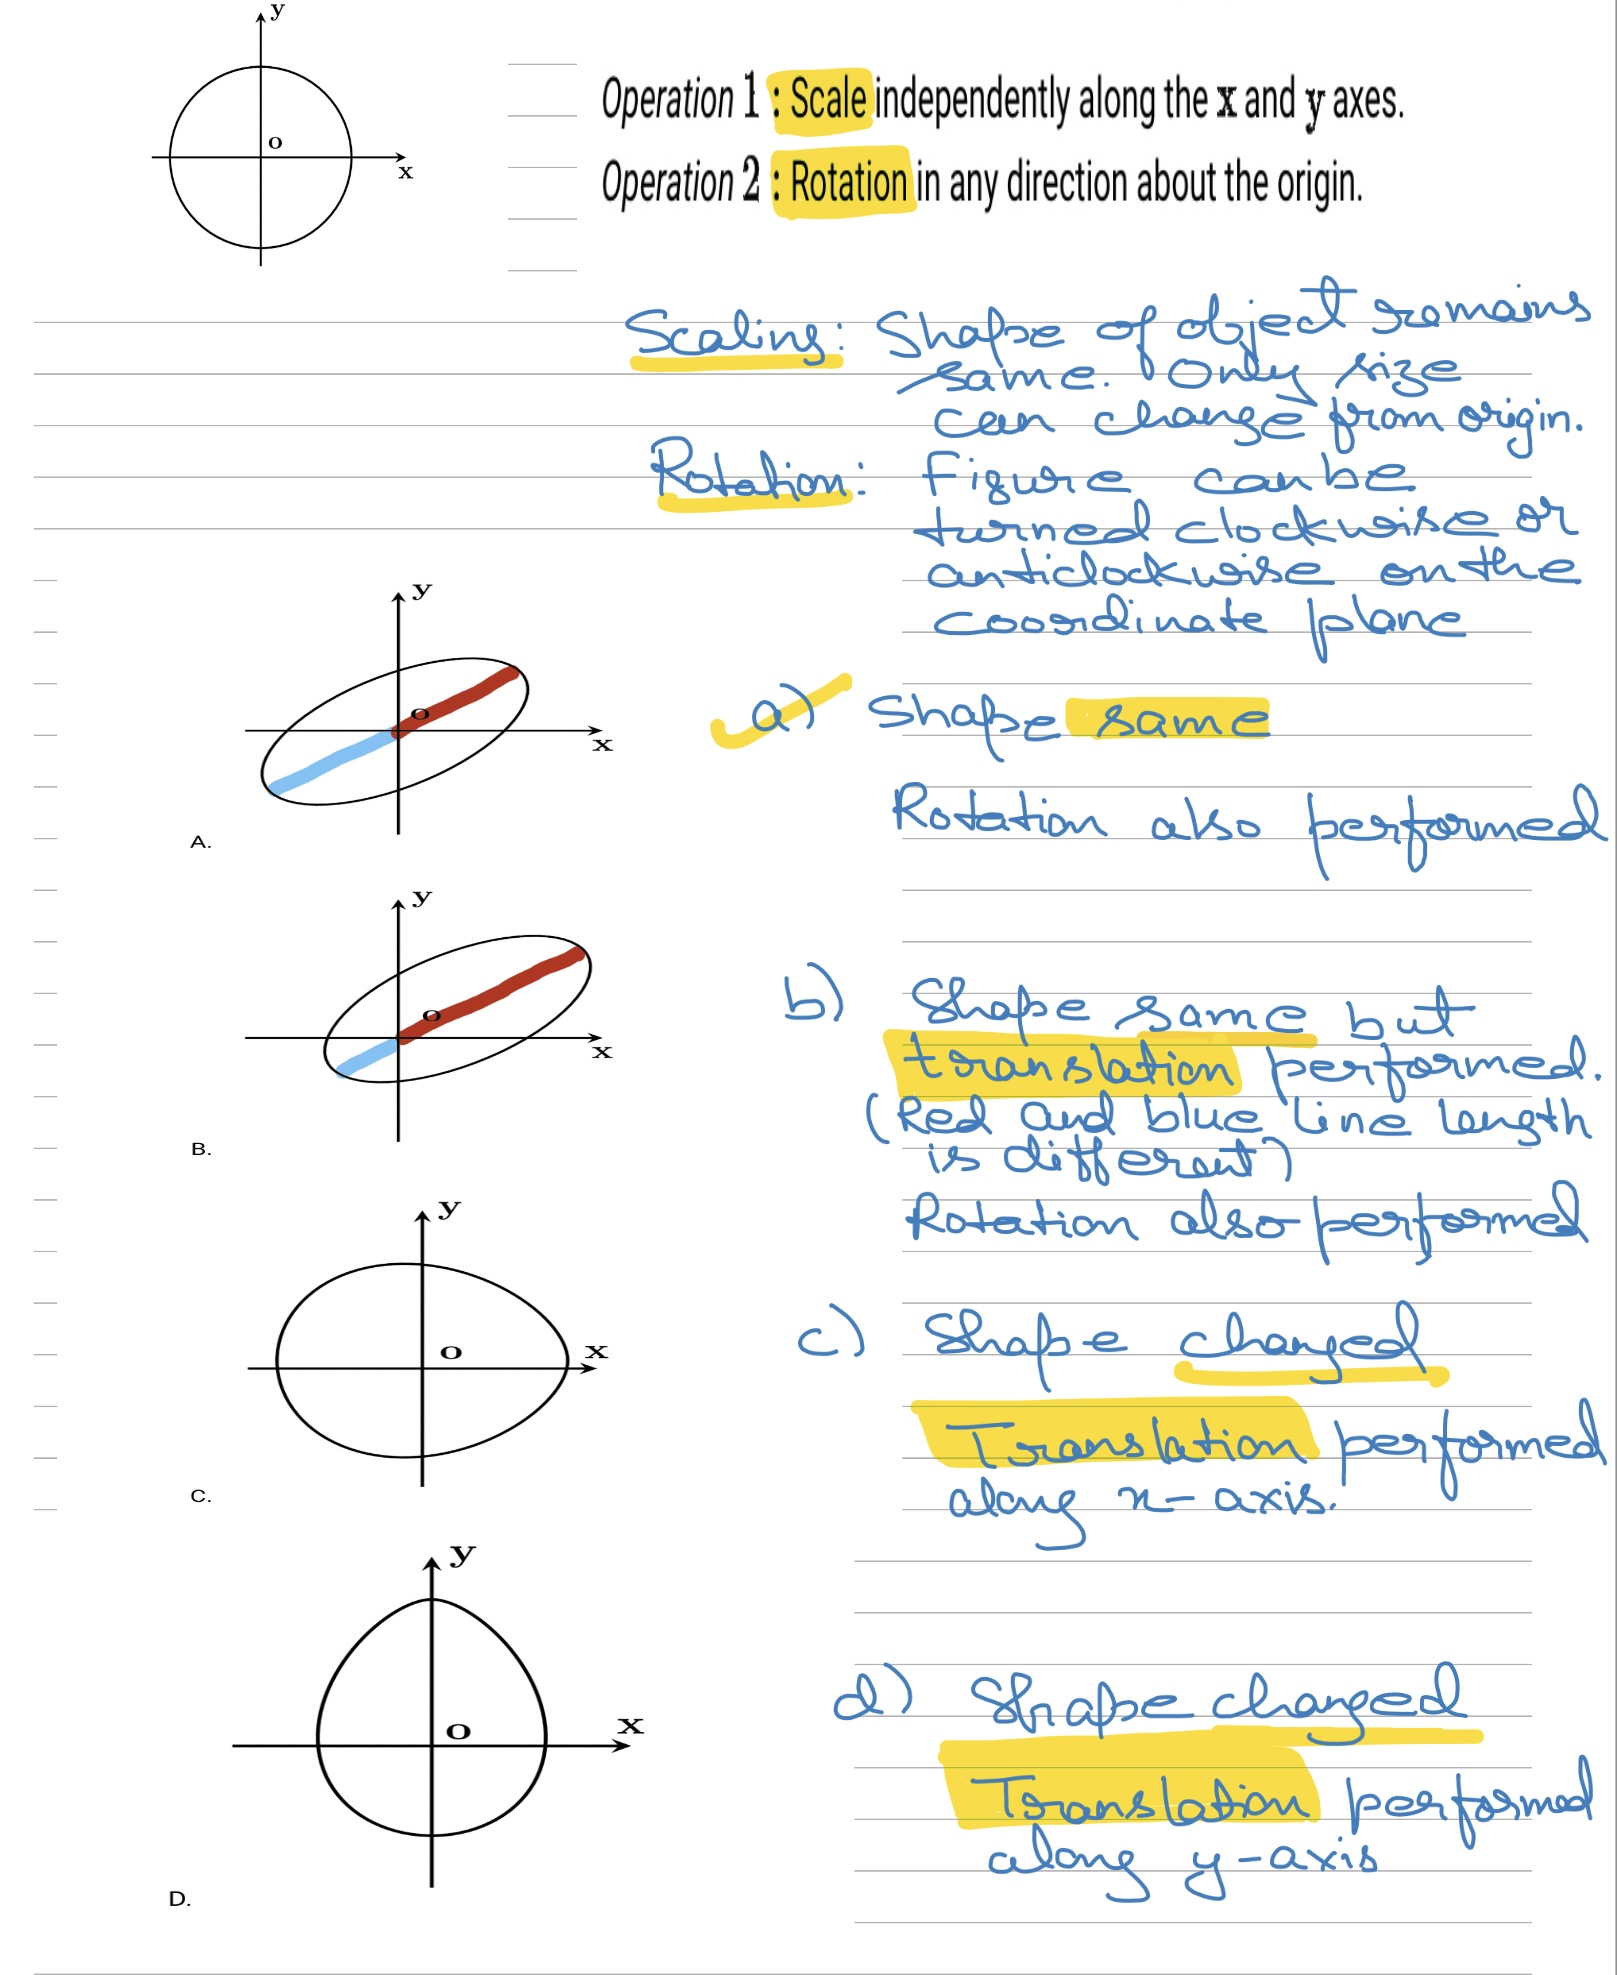 y
o
x
Operation 1 : Scale independently along the x and y axes.
Operation 2 : Rotation in any direction about the origin.
Scaling: Shape of object remains
same. Only size
can change from origin.
Rotation: Figure can be
turned clockwise or
anticlockwise on the
coordinate plane
y
o
x
A.
a) Shape same
Rotation also performed
y
o
x
B.
b) Shape same but
translation performed.
(Red and blue line length
is different)
Rotation also performed
y
o
x
C.
c) Shape changed
Translation performed
along x-axis.
y
o
x
D.
d) Shape changed
Translation performed
along y-axis